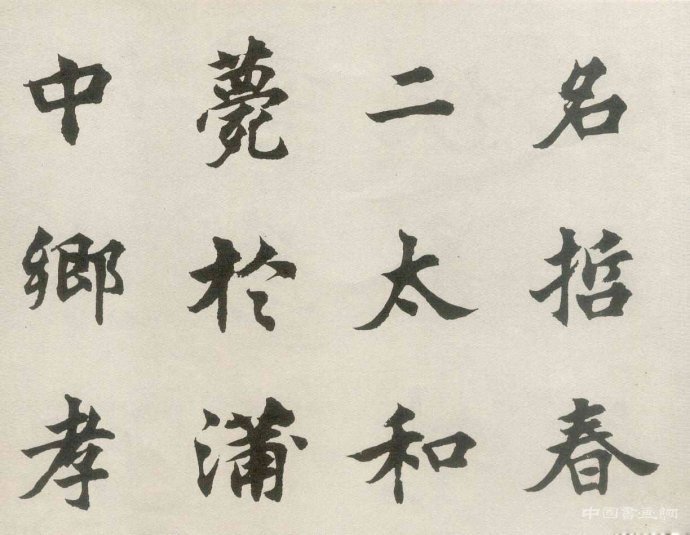 名哲春
二太和
薨於蒲
中鄉孝
中国書画網